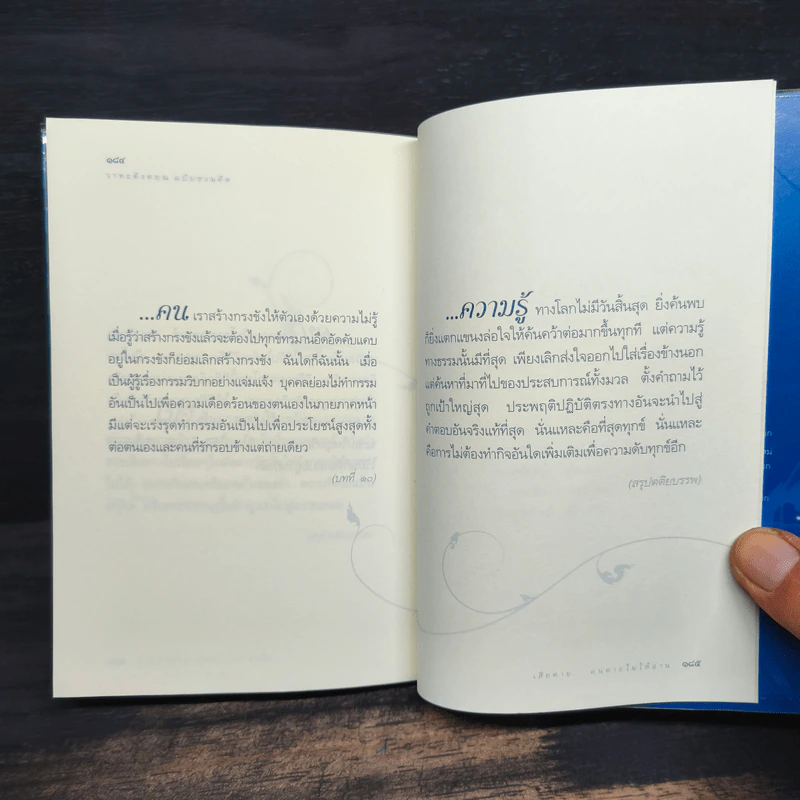 ๑๘๔
วาทะดังตฤณ ฉบับชวนคิด
...คน เราสร้างกรงขังให้ตัวเองด้วยความไม่รู้
เมื่อรู้ว่าสร้างกรงขังแล้วจะต้องไปทุกข์ทรมานอึดอัดคับแคบ
อยู่ในกรงขังก็ย่อมเลิกสร้างกรงขัง ฉันใดก็ฉันนั้น เมื่อ
เป็นผู้รู้เรื่องกรรมวิบากอย่างแจ่มแจ้ง บุคคลย่อมไม่ทำกรรม
อันเป็นไปเพื่อความเดือดร้อนของตนเองในภายภาคหน้า
มีแต่จะเร่งรุดทำกรรมอันเป็นไปเพื่อประโยชน์สูงสุดทั้ง
ต่อตนเองและคนที่รักรอบข้างแต่ถ่ายเดียว
(บทที่ ๑๐)
...ความรู้ ทางโลกไม่มีวันสิ้นสุด ยิ่งค้นพบ
ก็ยิ่งแตกแขนงล่อใจให้ค้นคว้าต่อมากขึ้นทุกที แต่ความรู้
ทางธรรมนั้นมีที่สุด เพียงเลิกส่งใจออกไปใส่เรื่องข้างนอก
แต่ค้นหาที่มาที่ไปของประสบการณ์ทั้งมวล ตั้งคำถามไว้
ถูกเป้าใหญ่สุด ประพฤติปฏิบัติตรงทางอันจะนำไปสู่
คำตอบอันจริงแท้ที่สุด นั่นแหละคือที่สุดทุกข์ นั่นแหละ
คือการไม่ต้องทำกิจอันใดเพิ่มเติมเพื่อความดับทุกข์อีก
(สรุปตติยบรรพ)
เสียดาย... คนตายไม่ได้อ่าน ๑๘๕